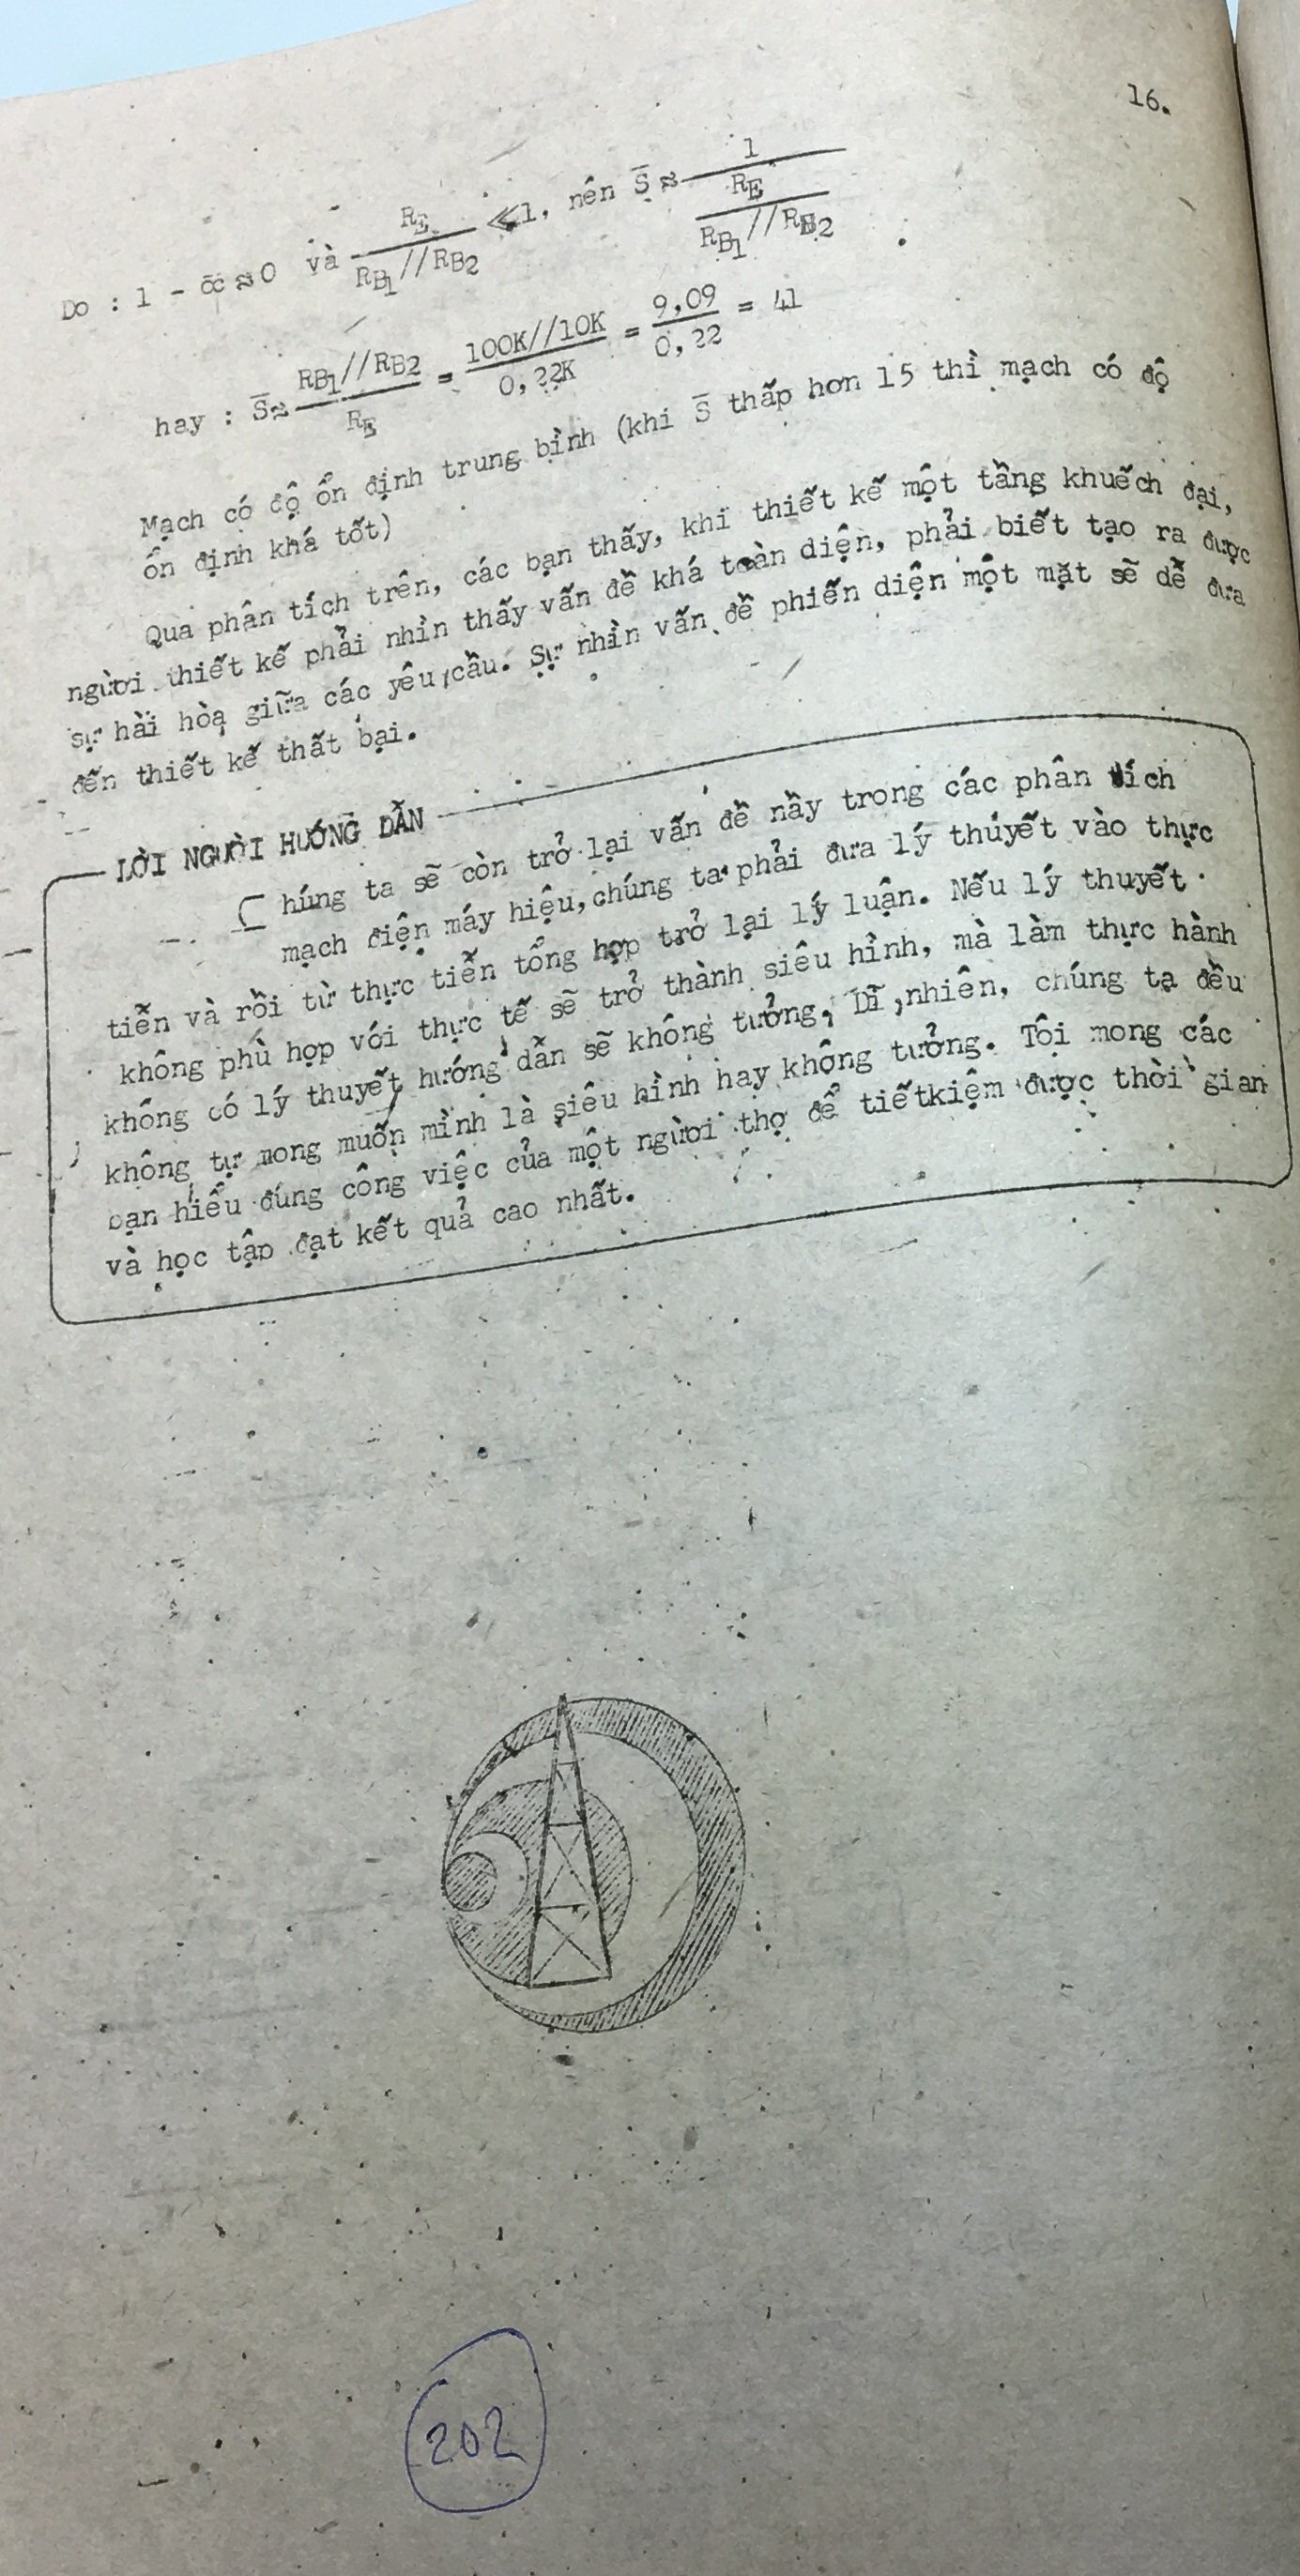 16.
Do : 1 - α ≈ 0 và R_E / (R_B1//R_B2) ≪ 1, nên S̄ ≈ 1 / (R_E / (R_B1//R_B2))
hay : S̄ ≈ (R_B1//R_B2) / R_E = 100K//10K / 0,22K = 9,09 / 0,22 = 41
Mạch có độ ổn định trung bình (khi S̄ thấp hơn 15 thì mạch có độ
ổn định khá tốt)
Qua phân tích trên, các bạn thấy, khi thiết kế một tầng khuếch đại,
người thiết kế phải nhìn thấy vấn đề khá toàn diện, phải biết tạo ra được
sự hài hòa giữa các yêu cầu. Sự nhìn vấn đề phiến diện một mặt sẽ dễ đưa
đến thiết kế thất bại.
LỜI NGƯỜI HƯỚNG DẪN
Chúng ta sẽ còn trở lại vấn đề nầy trong các phân tích
mạch điện máy hiệu, chúng ta phải đưa lý thuyết vào thực
tiễn và rồi từ thực tiễn tổng hợp trở lại lý luận. Nếu lý thuyết
không phù hợp với thực tế sẽ trở thành siêu hình, mà làm thực hành
không có lý thuyết hướng dẫn sẽ không tưởng, Dĩ nhiên, chúng ta đều
không tự mong muốn mình là siêu hình hay không tưởng. Tôi mong các
bạn hiểu đúng công việc của một người thợ để tiếtkiệm được thời gian
và học tập đạt kết quả cao nhất.
202